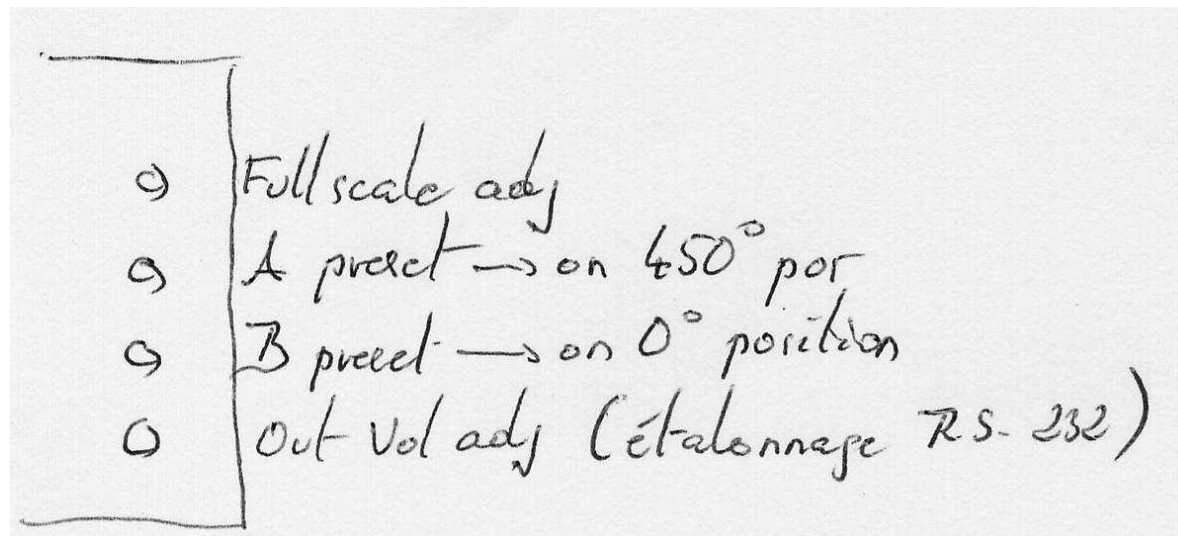 Full scale adj
A preset → on 450° pos
B preset → on 0° position
Out Vol adj (étalonnage RS-232)